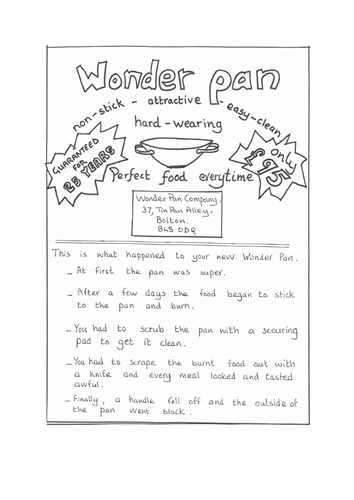 Wonder pan
non-stick - attractive - easy-clean
hard-wearing
GUARANTEED FOR 25 YEARS
only £95
Perfect food everytime
Wonder Pan Company,
37, Tin Pan Alley,
Bolton.
BL5 0DQ
This is what happened to your new Wonder Pan.
- At first the pan was super.
- After a few days the food began to stick
to the pan and burn.
- You had to scrub the pan with a scouring
pad to get it clean.
- You had to scrape the burnt food out with
a knife and every meal looked and tasted
awful.
- Finally, a handle fell off and the outside of
the pan went black.